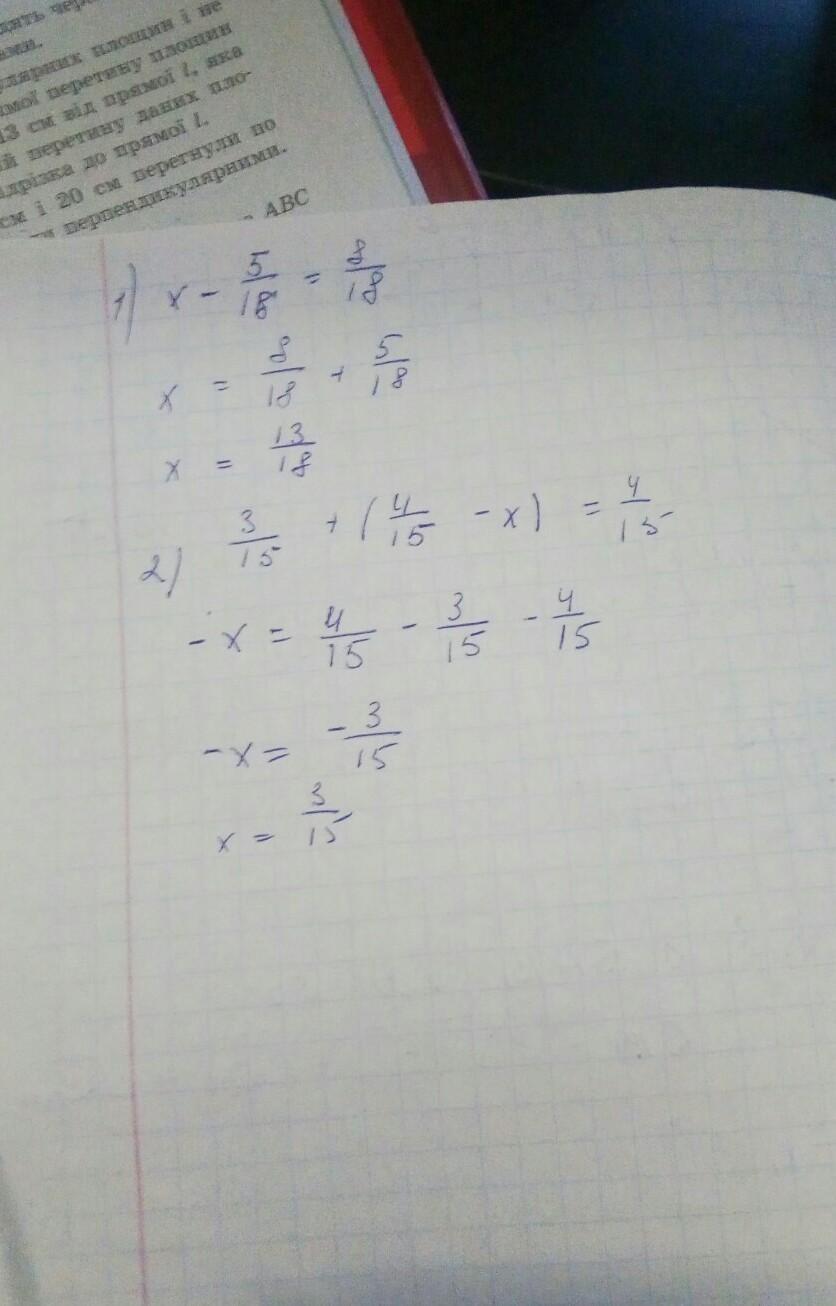 площин і не
перетину площин
13 см від прямої l, яка
перетину даних пло-
до прямої l.
см і 20 см перегнули по
перпендикулярними.
ABC
1) x - 5/18 = 8/18
x = 8/18 + 5/18
x = 13/18
2) 3/15 + (4/15 - x) = 4/15
-x = 4/15 - 3/15 - 4/15
-x = -3/15
x = 3/15